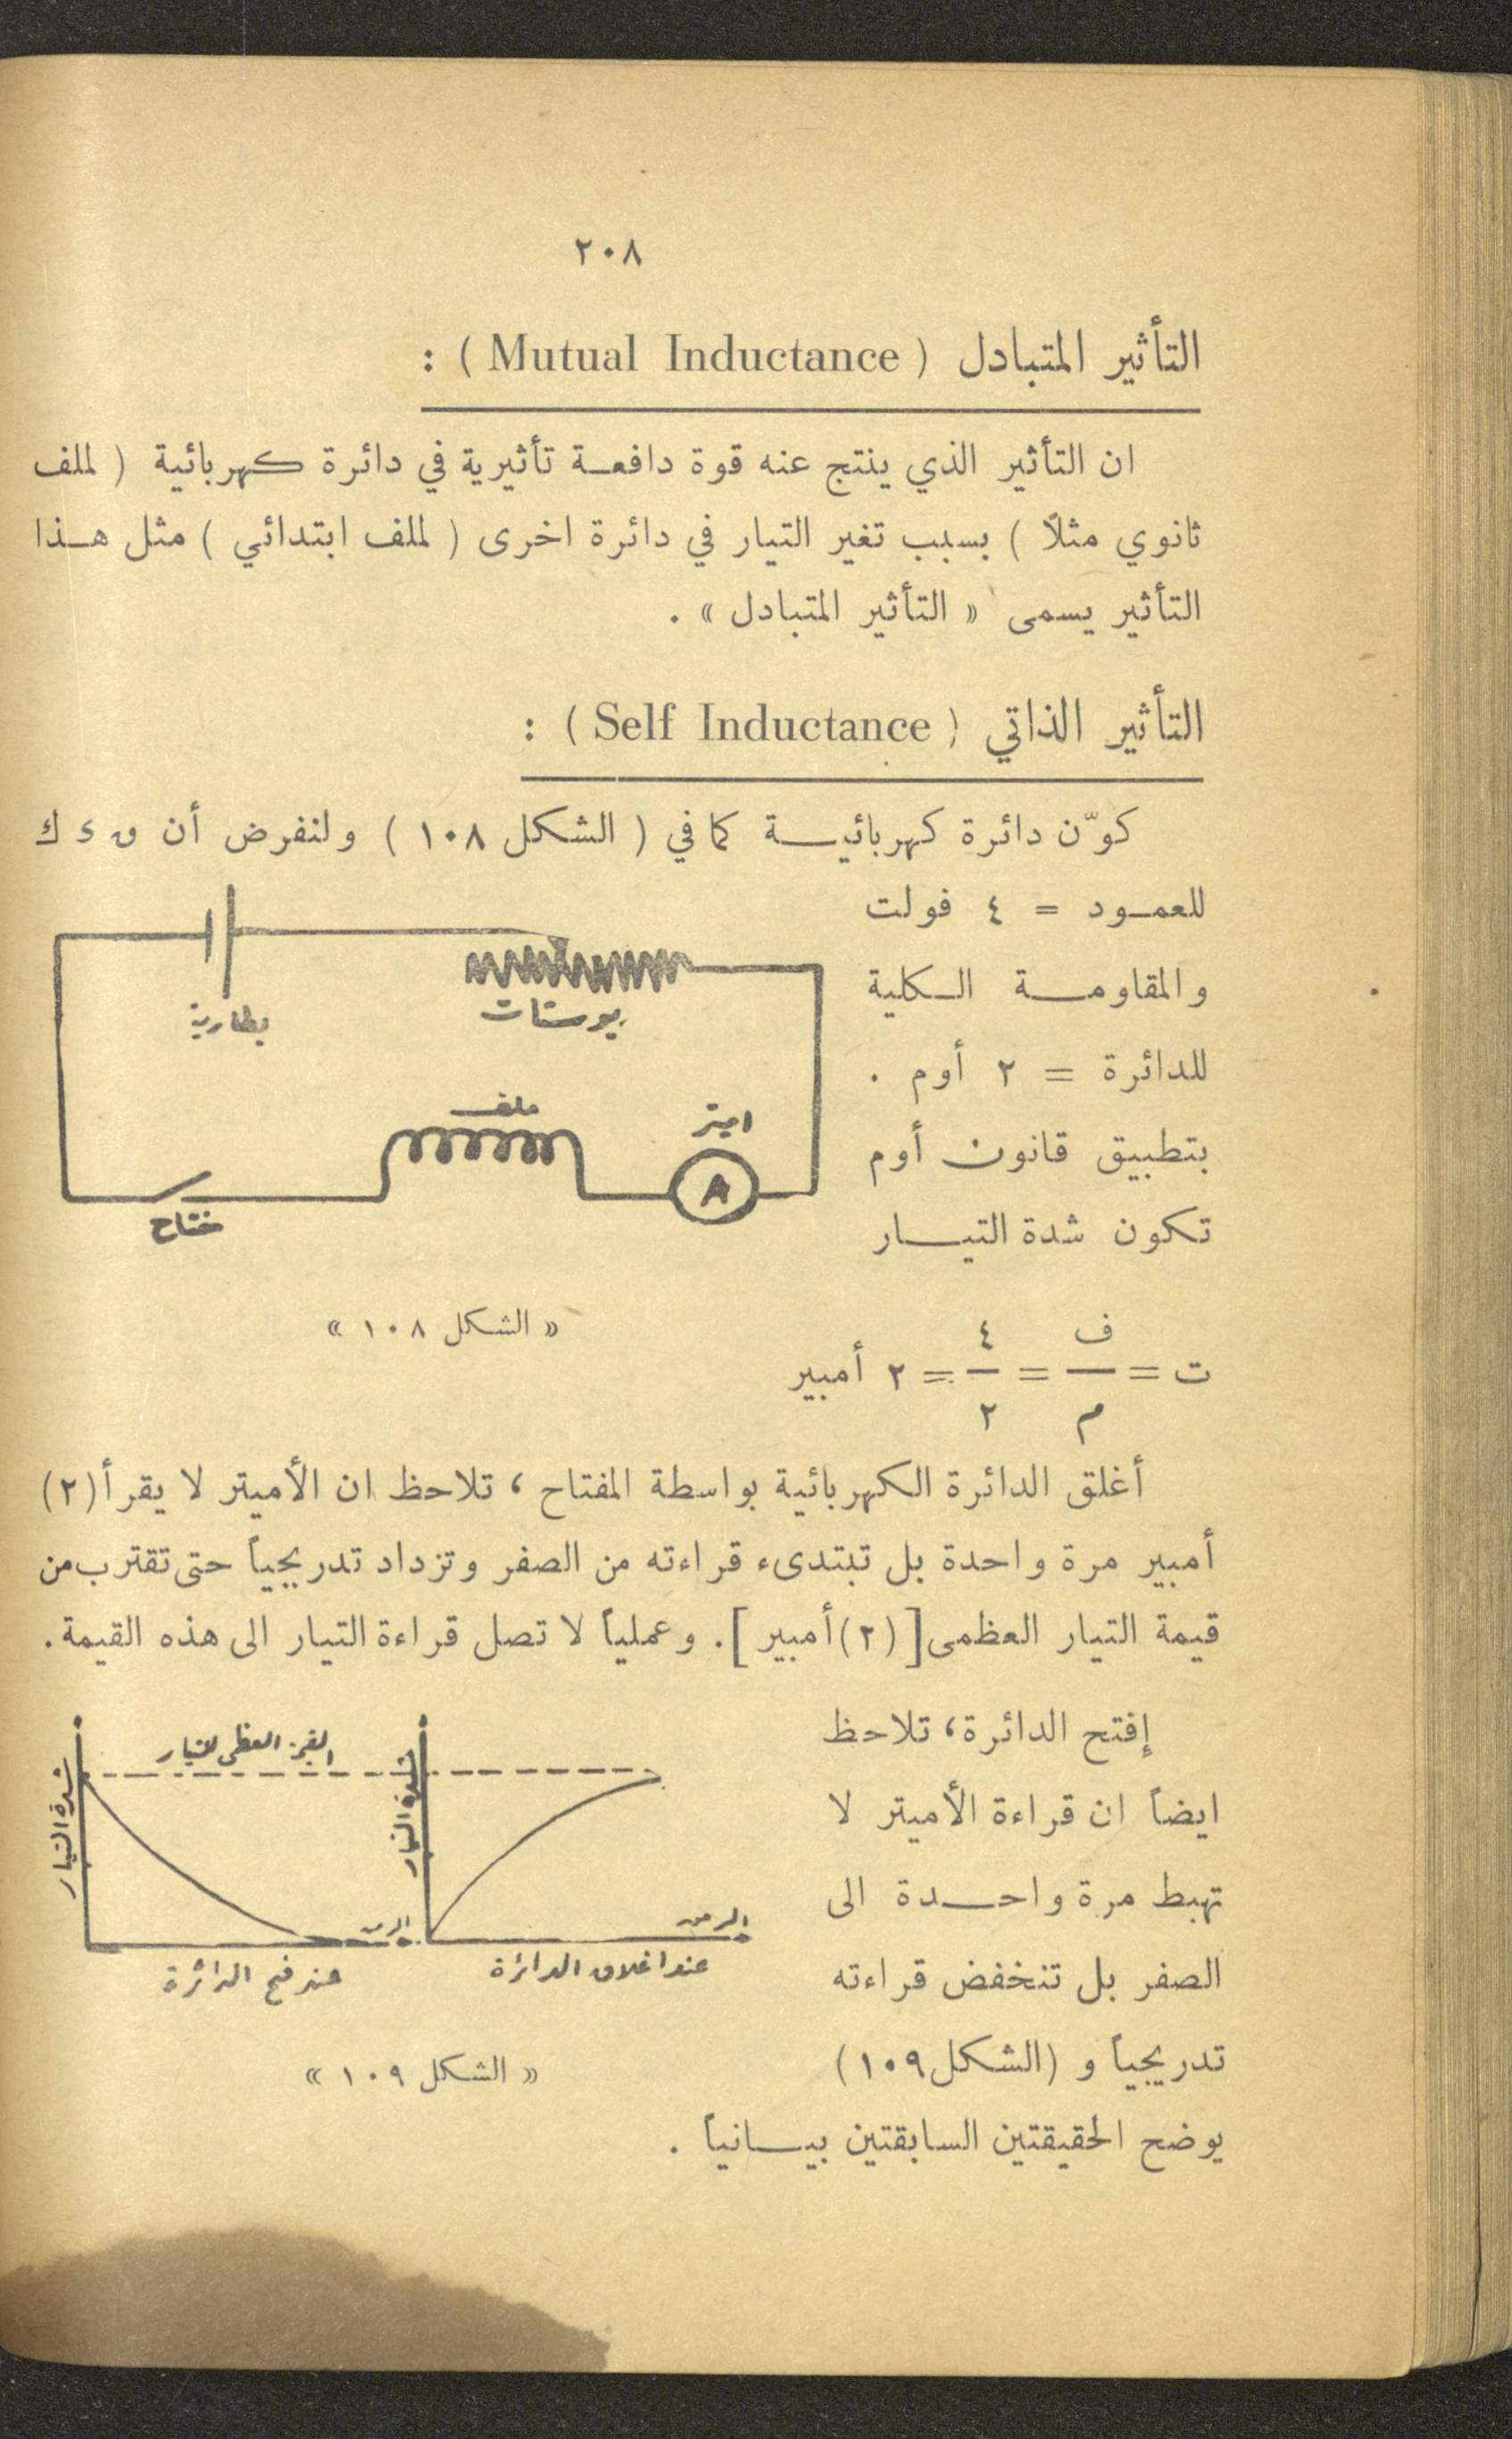 ٢٠٨
التأثير المتبادل ( Mutual Inductance ) :
ان التأثير الذي ينتج عنه قوة دافعة تأثيرية في دائرة كهربائية ( لملف
ثانوي مثلاً ) بسبب تغير التيار في دائرة اخرى ( لملف ابتدائي ) مثل هذا
التأثير يسمى « التأثير المتبادل » .
التأثير الذاتي ( Self Inductance ) :
كوّن دائرة كهربائية كما في ( الشكل ١٠٨ ) ولنفرض أن ق د ك
للعمود = ٤ فولت
والمقاومة الكلية
للدائرة = ٢ أوم .
بتطبيق قانون أوم
تكون شدة التيار
بطارية
ريوستات
ملف
اميتر
A
مفتاح
« الشكل ١٠٨ »
ت = ف/م = ٤/٢ = ٢ أمبير
أغلق الدائرة الكهربائية بواسطة المفتاح ، تلاحظ ان الأميتر لا يقرأ (٢)
أمبير مرة واحدة بل تبتدىء قراءته من الصفر وتزداد تدريجياً حتى تقترب من
قيمة التيار العظمى [ (٢) أمبير ] . وعملياً لا تصل قراءة التيار الى هذه القيمة .
إفتح الدائرة ، تلاحظ
ايضاً ان قراءة الأميتر لا
تهبط مرة واحدة الى
الصفر بل تنخفض قراءته
تدريجياً و (الشكل ١٠٩)
يوضح الحقيقتين السابقتين بيانياً .
القيمة العظمى للتيار
شدة التيار
شدة التيار
الزمن
الزمن
عند اغلاق الدائرة
عند فتح الدائرة
« الشكل ١٠٩ »